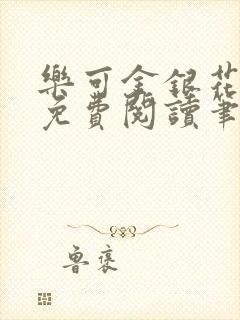 樂可金銀花
免費閱讀筆
魯褒